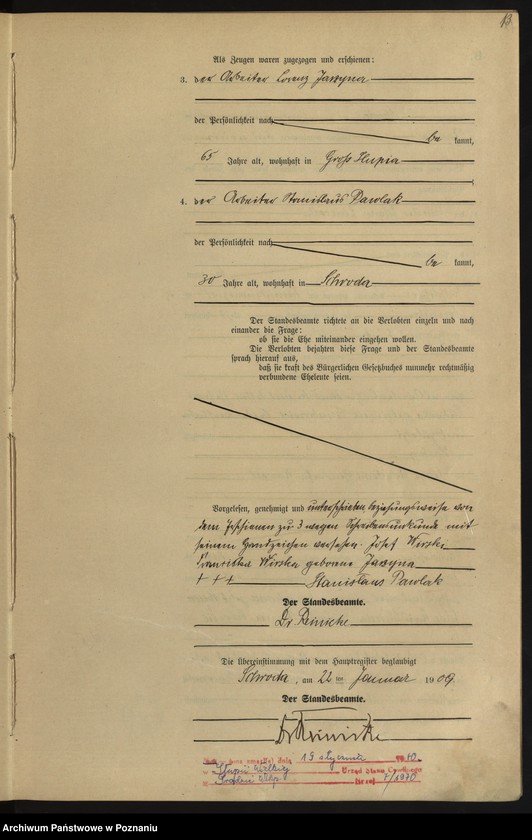 13
Als Zeugen waren zugezogen und erschienen:
3. der Arbeiter Lorenz Jaszyna
der Persönlichkeit nach
be kannt,
65 Jahre alt, wohnhaft in Groß Slupia
4. der Arbeiter Stanislaus Pawlak
der Persönlichkeit nach
be kannt,
30 Jahre alt, wohnhaft in Schroda
Der Standesbeamte richtete an die Verlobten einzeln und nach
einander die Frage:
ob sie die Ehe miteinander eingehen wollen.
Die Verlobten bejahten diese Frage und der Standesbeamte
sprach hierauf aus,
daß sie kraft des Bürgerlichen Gesetzbuches nunmehr rechtmäßig
verbundene Eheleute seien.
Vorgelesen, genehmigt und unterschrieben beziehungsweise von
dem Erschienenen zu 3 wegen Schreibensunkunde mit
seinem Handzeichen versehen. Josef Wirski
Wirska geborene Jaszyna
+++ Stanislaus Pawlak
Der Standesbeamte.
Dr Reinicke
Die Übereinstimmung mit dem Hauptregister beglaubigt
Schroda, am 22 ten Januar 1909.
Der Standesbeamte.
Dr Reinicke
zmarł dnia 19 stycznia 1970.
Słupii Wielkiej Urząd Stanu Cywilnego
Środa Wlkp. 7/1970
Archiwum Państwowe w Poznaniu